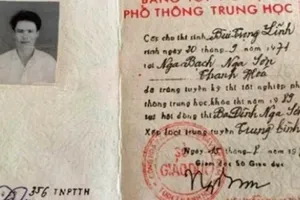 BẰNG TỐT NGHIỆP
PHỔ THÔNG TRUNG HỌC
Cấp cho thí sinh Bùi Trung Lĩnh
sinh ngày 20 tháng 9 năm 1971
tại Nga Bạch Nga Sơn
Thanh Hóa
đã trúng tuyển kỳ thi tốt nghiệp phổ
thông trung học, khóa thi năm 1989
tại hội đồng thi Ba Đình Nga Sơn
Xếp loại trúng tuyển Trung bình
Ngày
Giám đốc Sở Giáo dục
356 TNPTTH